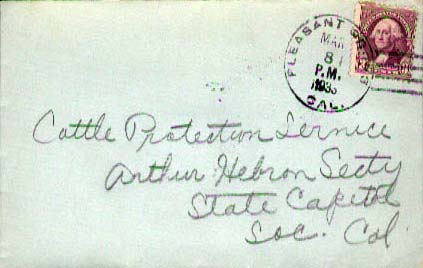 PLEASANT
MAR
8
P.M.
1935
CAL.
Cattle Protection Service
Arthur Hebron Secty
State Capitol
Sac. Cal